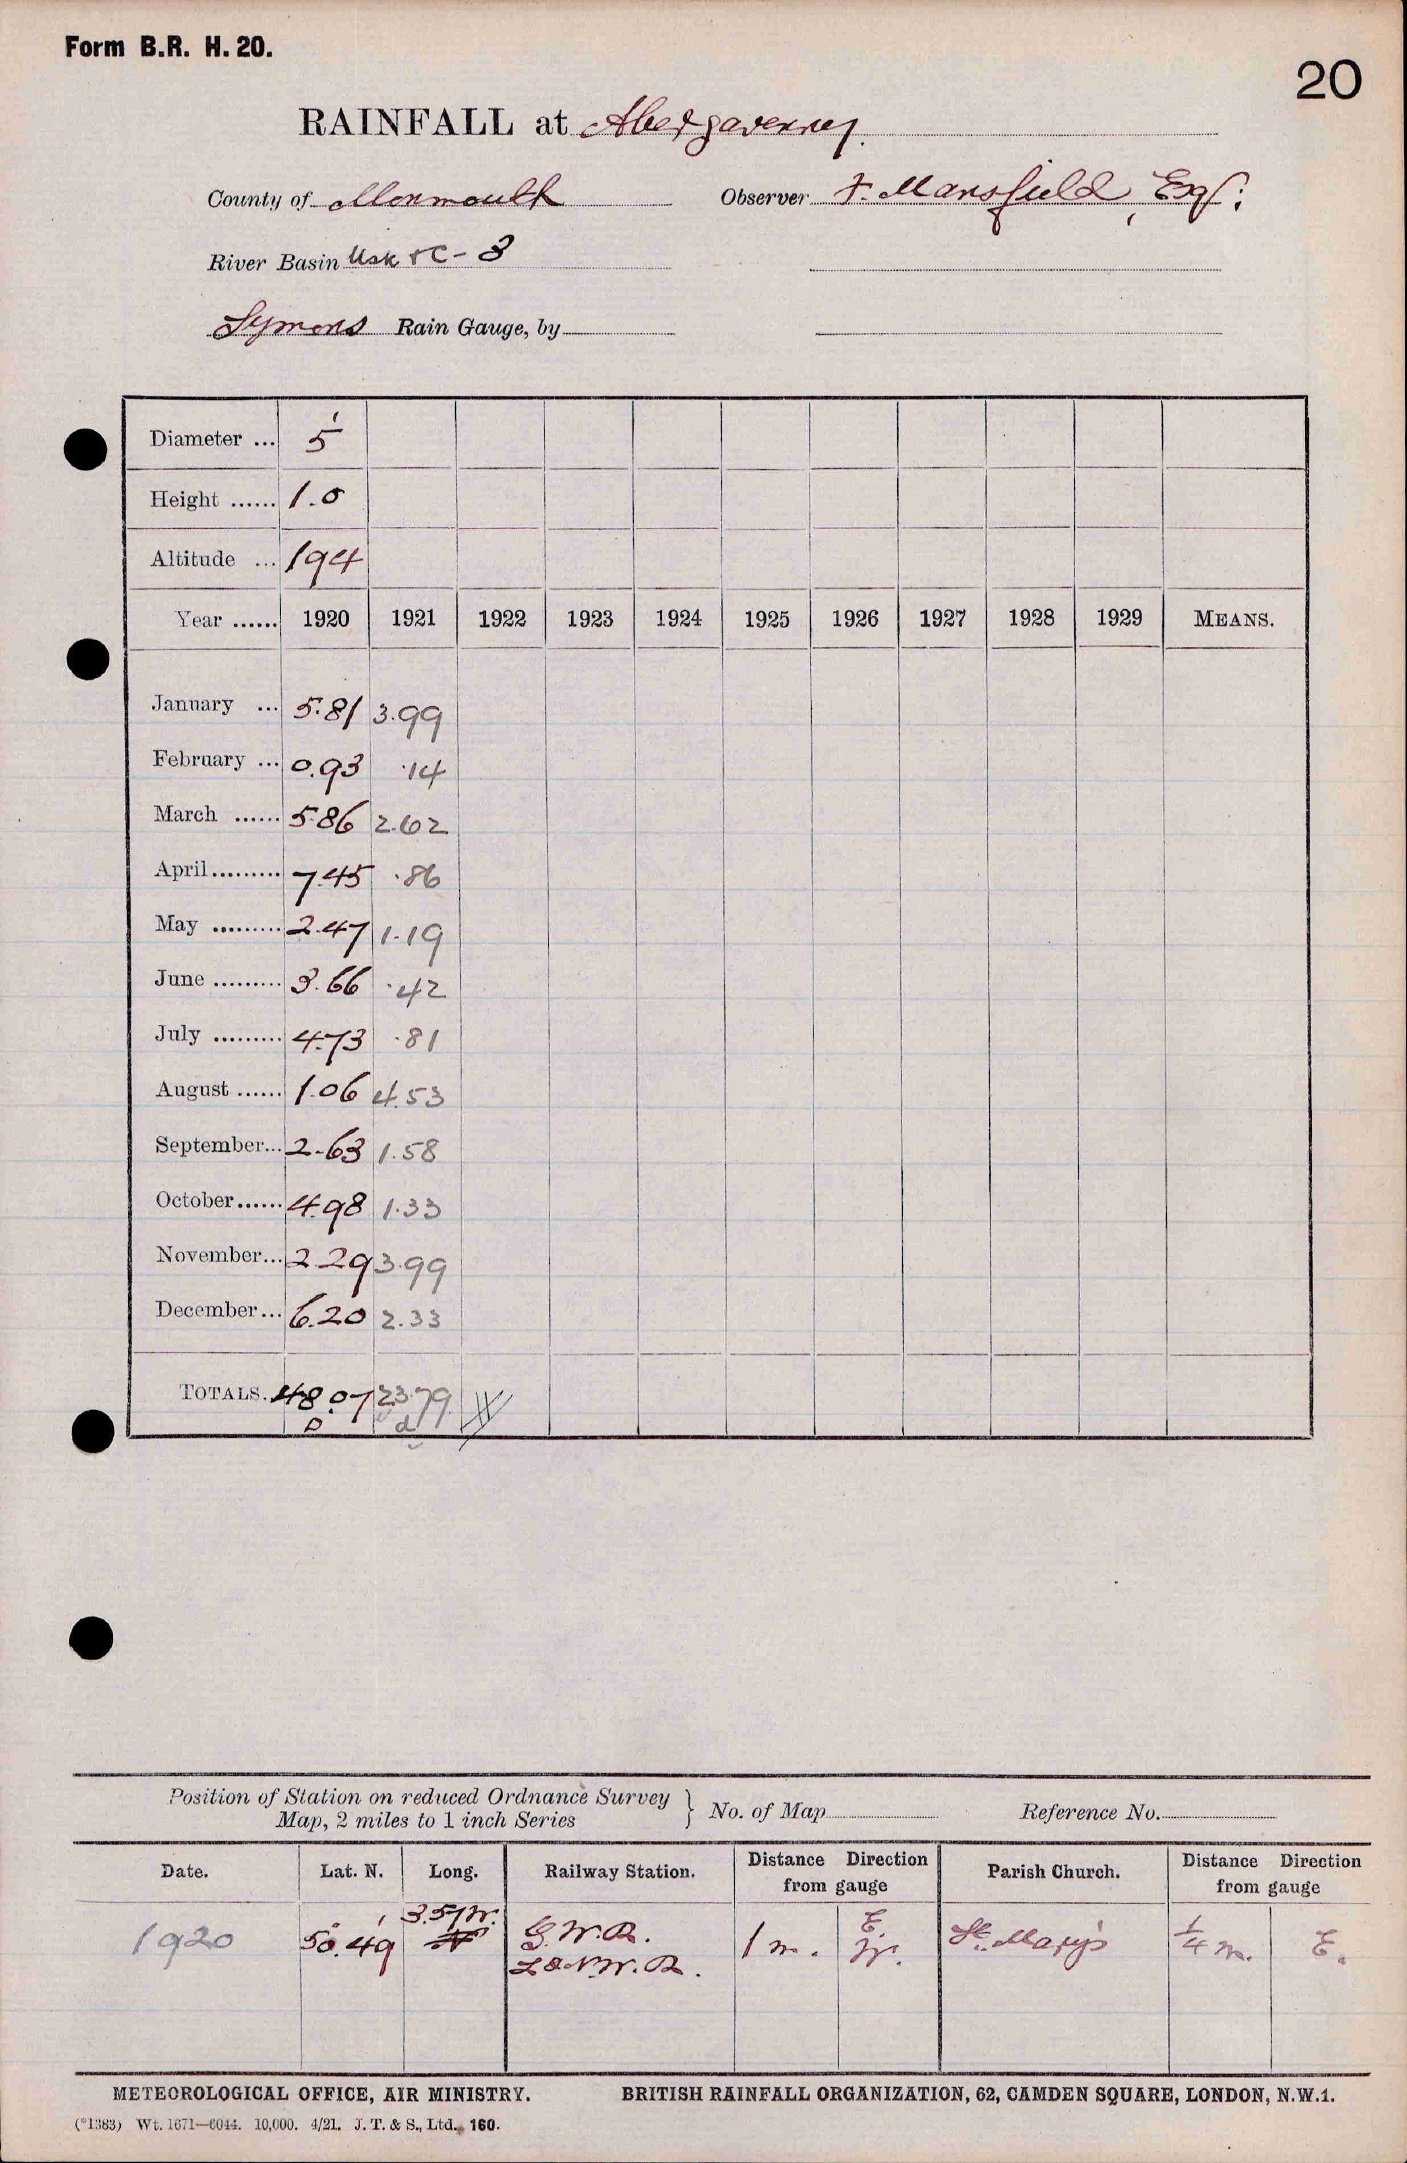 Form B.R. H. 20.
20
RAINFALL at Abergavenny.
County of Monmouth Observer F. Mansfield, Esq:
River Basin Usk &C - 3
Symons Rain Gauge, by
Diameter ... 5
Height ...... 1.0
Altitude ... 194
Year ...... 1920 1921 1922 1923 1924 1925 1926 1927 1928 1929 MEANS.
January ... 5.81 3.99
February ... 0.93 .14
March ...... 5.86 2.62
April ......... 7.45 .86
May ......... 2.47 1.19
June ......... 3.66 .42
July ......... 4.73 .81
August ...... 1.06 4.53
September... 2.63 1.58
October...... 4.98 1.33
November... 2.29 3.99
December... 6.20 2.33
TOTALS. 48.07 23.79
Position of Station on reduced Ordnance Survey
Map, 2 miles to 1 inch Series } No. of Map Reference No.
Date. Lat. N. Long. Railway Station. Distance Direction from gauge Parish Church. Distance Direction from gauge
1920 50°.49' 3.57W. G.W.R. 1 m. E. St. Mary's 1/4 m. E.
L&N.W.R. W.
METEOROLOGICAL OFFICE, AIR MINISTRY. BRITISH RAINFALL ORGANIZATION, 62, CAMDEN SQUARE, LONDON, N.W.1.
(*1383) Wt. 1671—6044. 10,000. 4/21. J. T. & S., Ltd. 160.